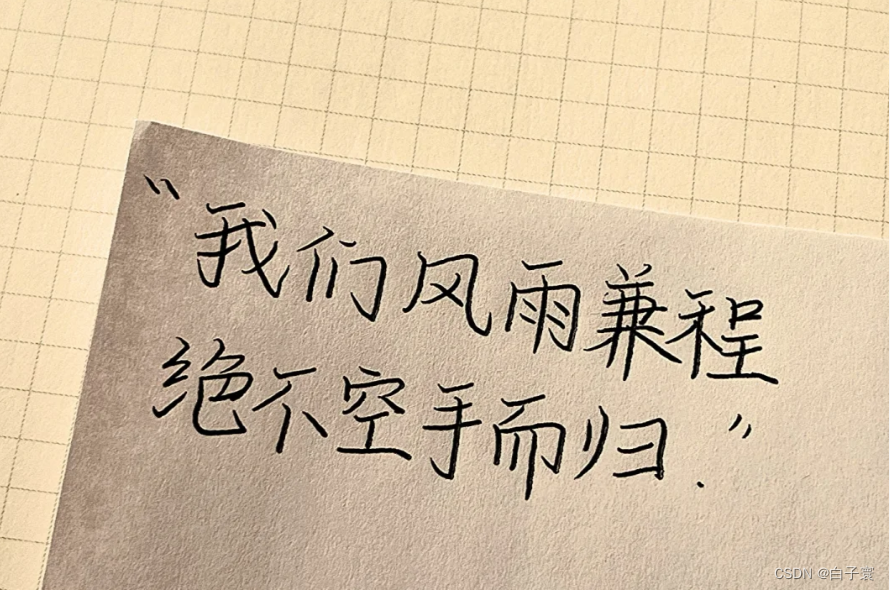 “我们风雨兼程
绝不空手而归.”
CSDN @白子寰